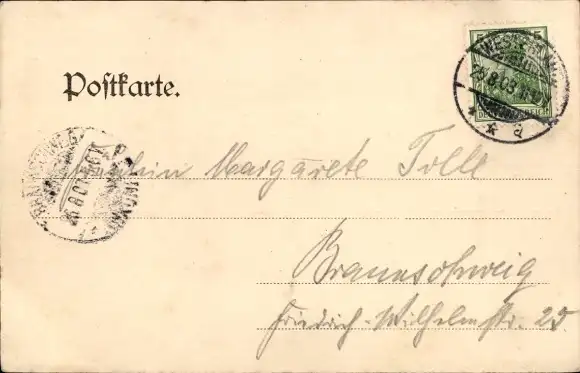 Postkarte.
5 5
25.8.03
Fräulein Margarete Tolle
Braunschweig
Friedrich-Wilhelmstr. 25.